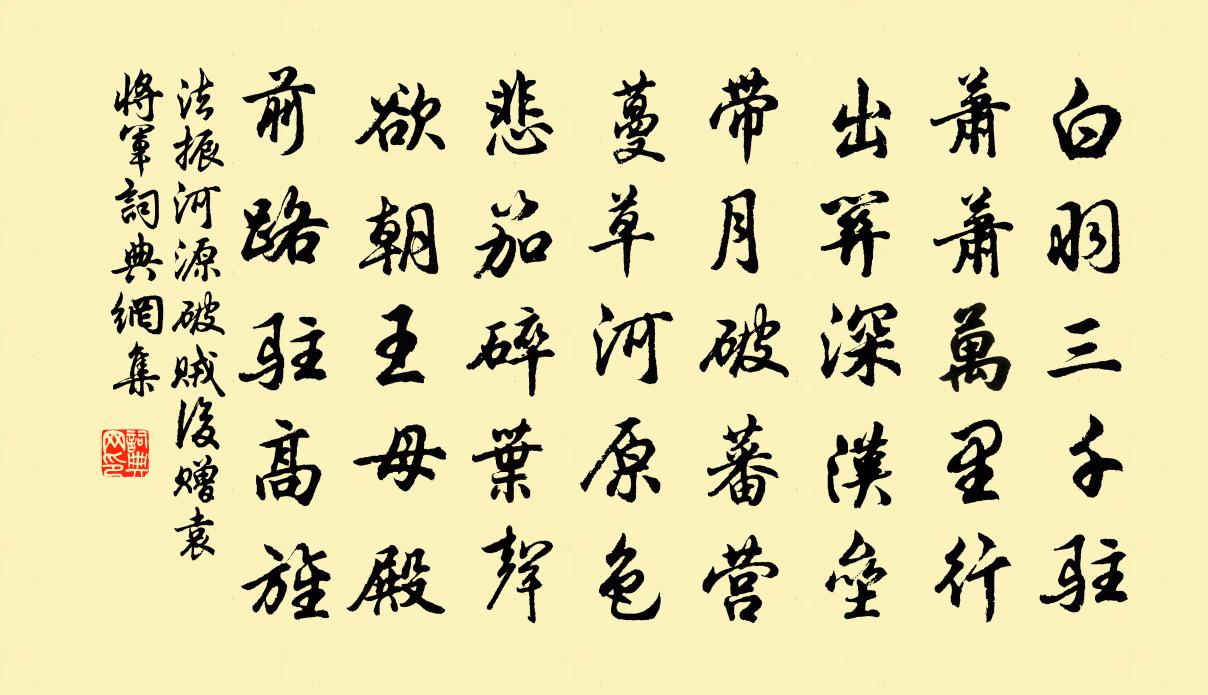 白羽三千駐
蕭蕭萬里行
出關深漢壘
帶月破蕃营
蔓草河原色
悲笳碎葉聲
欲朝王母殿
前路駐高旌
法振河源破贼後赠袁
將軍詞典網集
詞典网印